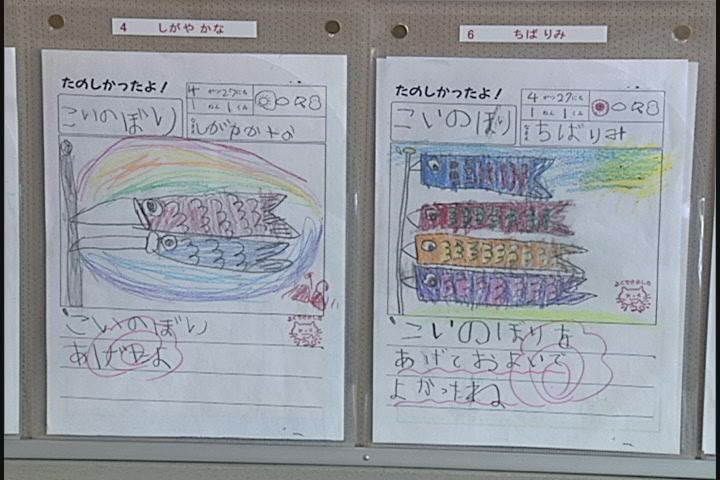 4 しがや かな
たのしかったよ!
4 がつ27にち
1 ねん 1 くみ
こいのぼり
なまえ しがやかな
こいのぼり
あげたよ
6 ちば りみ
たのしかったよ!
4 がつ27にち
1 ねん 1 くみ
こいのぼり
なまえ ちばりみ
こいのぼりを
あげておよいで
よかったね